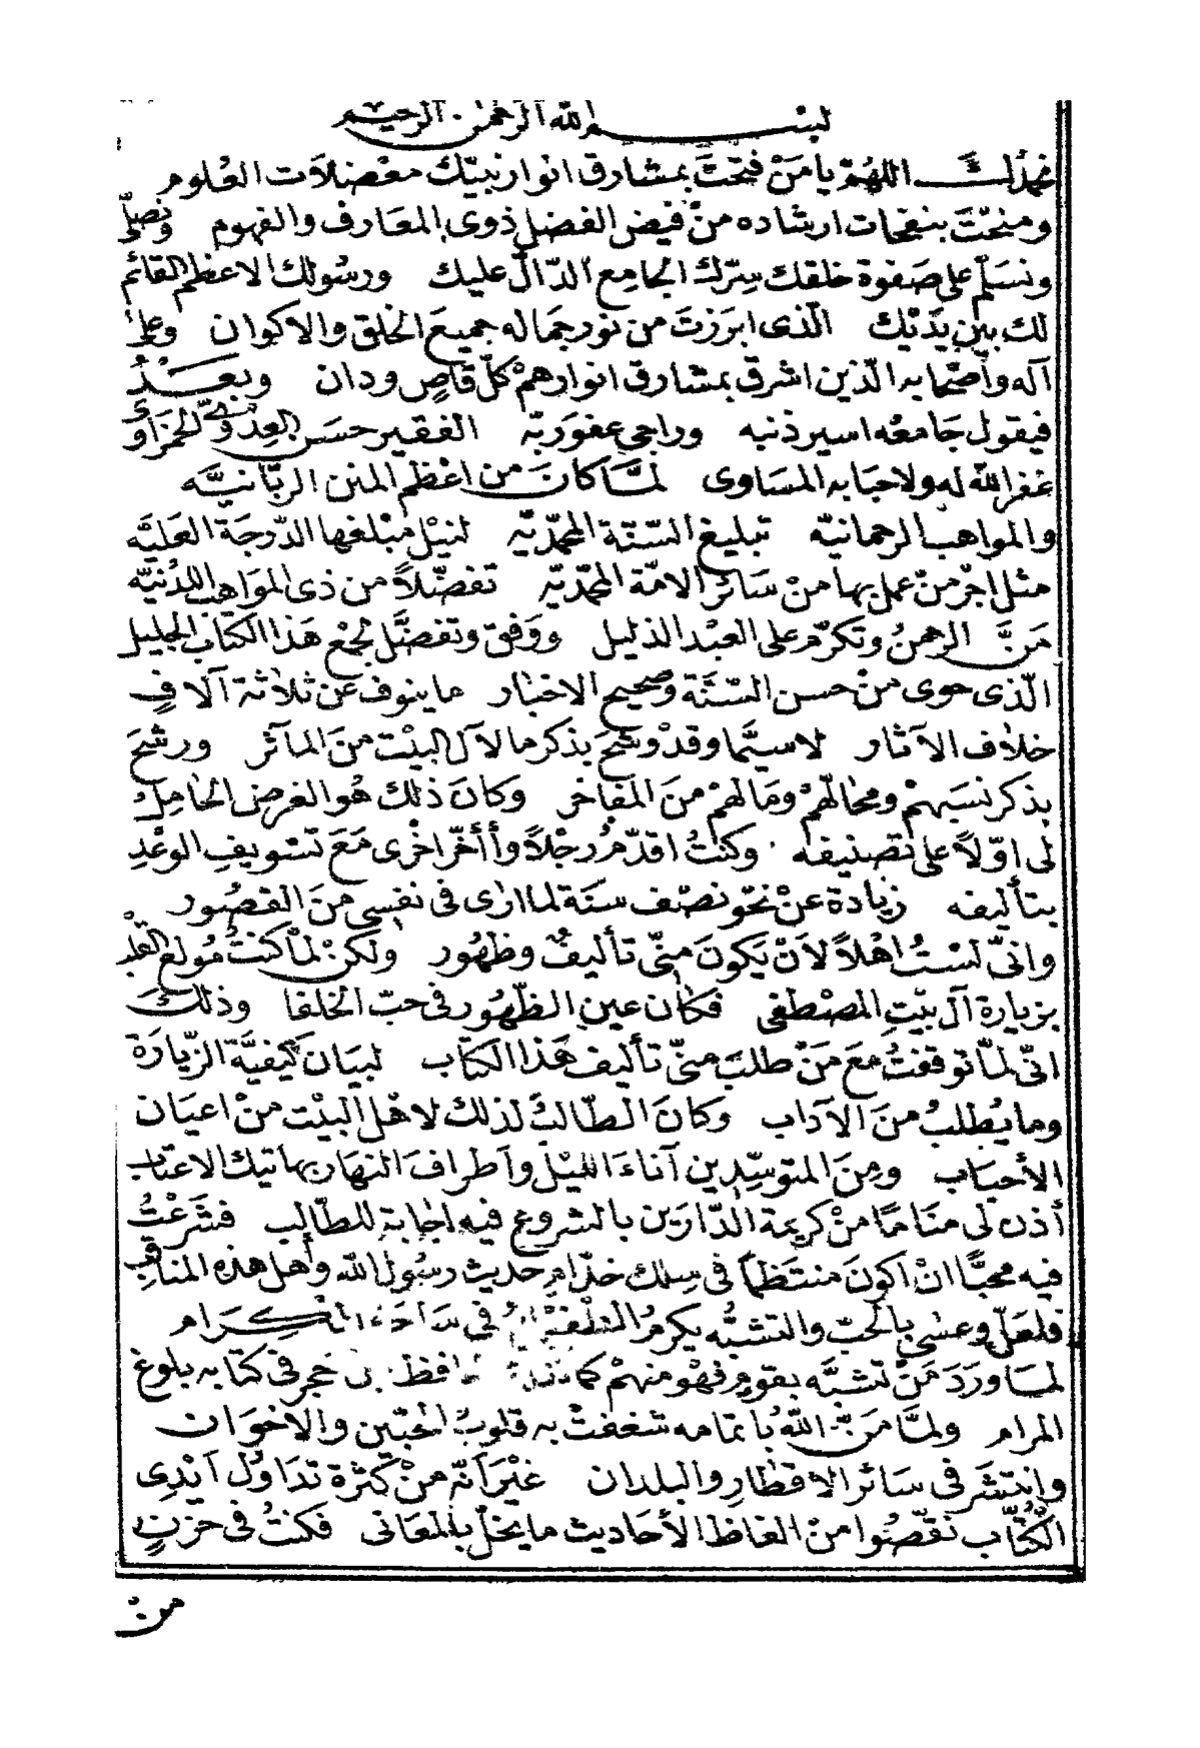 بسم الله الرحمن الرحيم
نحمدك اللهم يا من فتحت بمشارق انوار نبيك معضلات العلوم
ومنحت بنفحات ارشاده من فيض الفضل ذوى المعارف والفهوم ونصلى
ونسلم على صفوة خلقك سرك الجامع الدال عليك ورسولك الاعظم القائم
لك بين يديك الذى ابرزت من نور جماله جميع الخلق والاكوان وعلى
آله وأصحابه الذين اشرق بمشارق انوارهم كل قاص ودان وبعد
فيقول جامعه اسير ذنبه وراجى عفو ربه الفقير حسن العدوى الحمزاوى
غفر الله له ولاحبابه المساوى لما كان من اعظم المنن الربانيه
والمواهب الرحمانيه تبليغ السنة المحمديه لنيل مبلغها الدرجة العليه
مثل اجر من عمل بها من سائر الامة المحمديه تفضلاً من ذى المواهب اللدنيه
من الرحمن وتكرم على العبد الذليل ووفق وتفضل لجمع هذا الكتاب الجليل
الذى حوى من حسن السنة وصحيح الاخبار ما ينوف عن ثلاثة آلاف
خلاف الآثار لاسيما وقد وشح بذكر ما لآل البيت من المآثر ورشح
بذكر نسبهم ومحالهم وما لهم من المفاخر وكان ذلك هو الغرض الحامل
لى اولاً على تصنيفه وكنت اقدم رجلاً وأأخر اخرى مع تسويف الوعد
بتأليفه زيادة عن نحو نصف سنة لما ارى فى نفسى من القصور
وانى لست اهلاً لأن يكون منى تأليف وظهور ولكن لما كنت مولع القلب
بزيارة آل بيت المصطفى فكان عين الظهور فى حب الخلفا وذلك
انى لما توقفت مع من طلب منى تأليف هذا الكتاب لبيان كيفية الزيارة
وما يطلب من الآداب وكان الطالب لذلك لاهل البيت من اعيان
الأحباب ومن المتوسدين آناء الليل وأطراف النهار بهاتيك الاعتاب
أذن لى مناما من كريمة الدارين بالشروع فيه اجابة للطالب فشرعت
فيه محبا ان اكون منتظما فى سلك خدام حديث رسول الله وأهل هذه المناقب
فلعل وعسى بالحب والتشبه يكرم فى ساحة الكرام
لما ورد من تشبه بقوم فهو منهم كما الحافظ بن حجر فى كتابه بلوغ
المرام ولما من الله باتمامه شغفت به قلوب المحبين والاخوان
وانتشر فى سائر الاقطار والبلدان غير أنه من كثرة تداول ايدى
الكتاب نقصوا من الفاظ الأحاديث ما يخل بالمعانى فكنت فى حزن
من